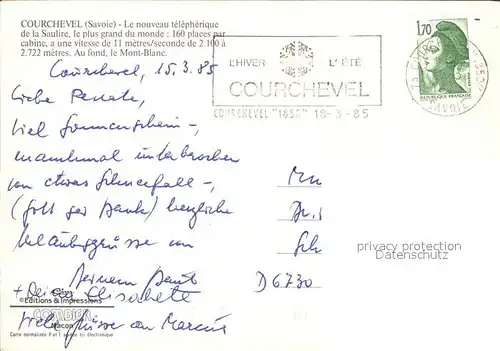 COURCHEVEL (Savoie) - Le nouveau téléphérique
de la Saulire, le plus grand du monde : 160 places par
cabine, a une vitesse de 11 mètres/seconde de 2.100 à
2.722 mètres. Au fond, le Mont-Blanc.
1,70
REPUBLIQUE FRANÇAISE
L'HIVER L'ÉTÉ
COURCHEVEL
COURCHEVEL "1850" 18-3-85
SAVOIE
Courchevel, 15.3.85
Liebe Renate,
viel Sonnenschein -,
manchmal unterbrochen
von etwas Schneefall -,
(Gott sei Dank) herzliche
Urlaubsgrüsse von
+ Deiner Elisabeth
Viele Grüsse an Marcus
D 6730
privacy protection
©Editions & Impressions
COMBIER
Macon